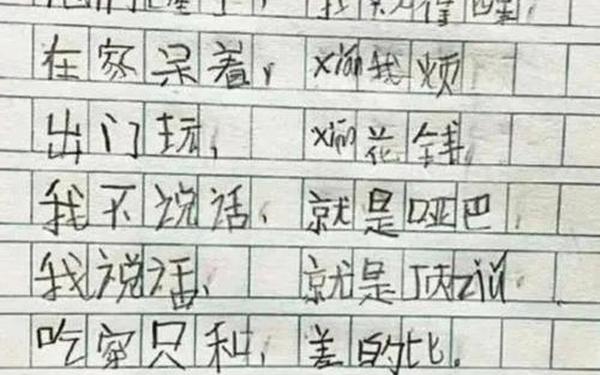 在家呆着，xián我烦
出门玩，xián花钱
我不说话，就是哑巴，
我说话，就是顶zuǐ
吃家只和，差的比.